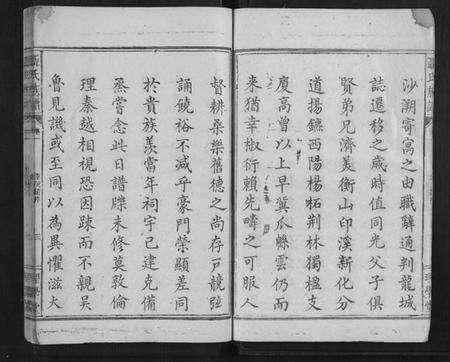 沙溯寄寓之由職辭通判龍城
誌遷移之歲時值同光父子俱
賢弟兄濟美衡山印溪新化分
道揚鑣西陽楊柘荆林獨榅支
慶高曾以上早冀瓜緜雲仍而
来猶幸椒衍賴先疇之可服人
督耕桑樂舊德之尚存戸競弦
誦饒裕不減乎豪門榮顯差同
於貴族羨當年祠宇已建克備
烝嘗念此日譜牒未修莫敦倫
理秦越相視恐因踈而不親吴
魯見譏或至同以為異懼滋大